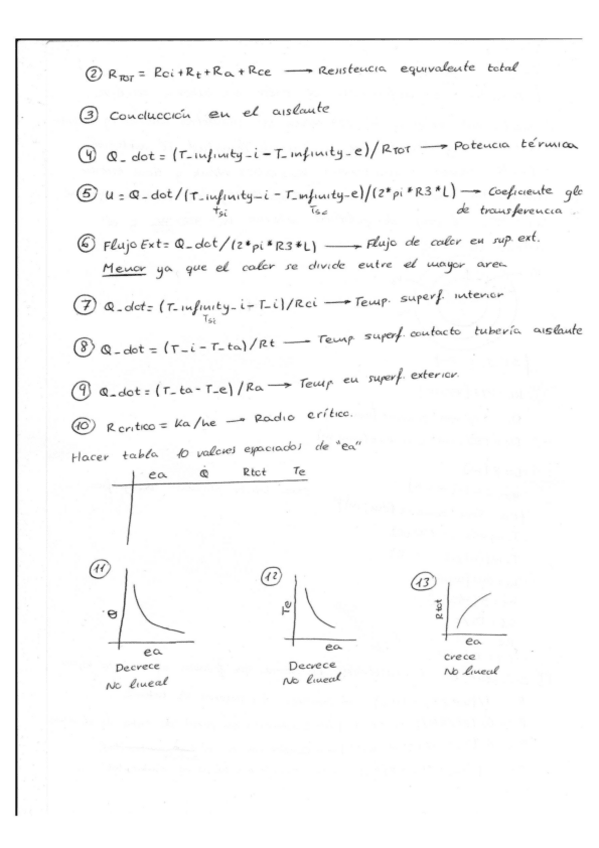 ② R_TOT = Rci+Rt+Ra+Rce → Resistencia equivalente total
③ Conducción en el aislante
④ Q_dot = (T_infinity_i - T_infinity_e)/R_TOT → Potencia térmica
⑤ U = Q_dot/(T_infinity_i - T_infinity_e)/(2*pi*R3*L) → Coeficiente glo
Tsi Tse de transferencia.
⑥ Flujo Ext = Q_dot/(2*pi*R3*L) → Flujo de calor en sup. ext.
Menor ya que el calor se divide entre el mayor area
⑦ Q_dot = (T_infinity_i - T_i)/Rci → Temp. superf. interior
Tsi
⑧ Q_dot = (T_i - T_ta)/Rt → Temp superf. contacto tubería aislante
⑨ Q_dot = (T_ta - T_e)/Ra → Temp en superf. exterior.
⑩ R critico = Ka/he → Radio crítico.
Hacer tabla 10 valores espaciados de "ea"
ea Q̇ Rtot Te
⑪ ⑫ ⑬
Te Rtot
ea ea ea
Decrece Decrece Crece
No lineal No lineal No lineal